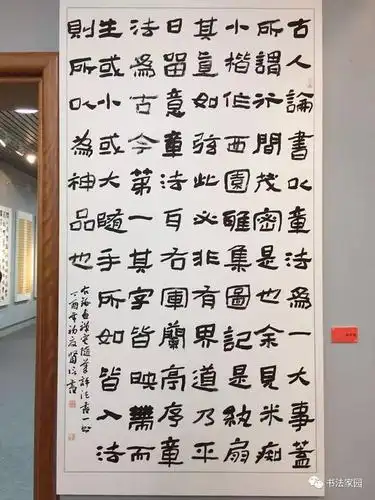 古人論書以章法為一大事蓋
所謂行間茂密是也余見米痴
小楷作西園雅集圖記是紈扇
其直如弦此必非有界道乃平
日留意章法耳右軍蘭亭序章
法為古今第一其字皆映帶而
生或小或大隨手所如皆入法
則所以為神品也
右錄畫禪室隨筆評法書一則
丁酉年初夏
書法家园